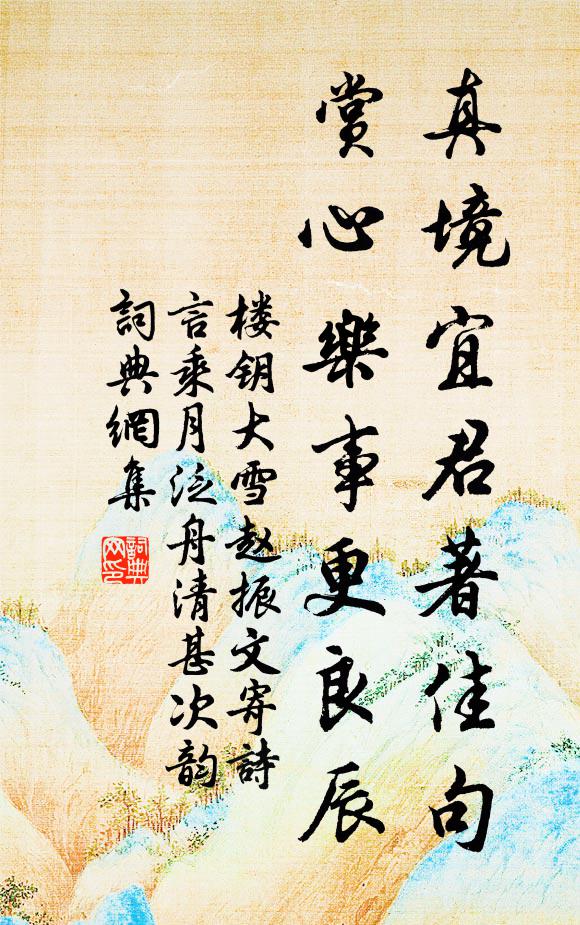 真境宜君著佳句
赏心樂事更良辰
楼钥大雪赵振文寄詩
言乘月泛舟清甚次韵
詞典網集
詞典
网印